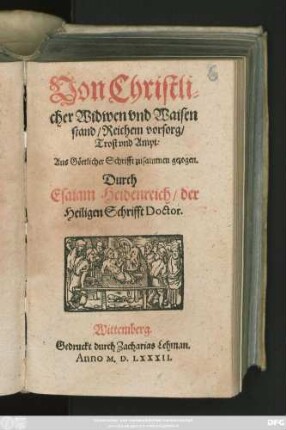 6
Von Christli-
cher Widwen vnd Waisen
stand/ Reichem versorg/
Trost vnd Ampt/
Aus Göttlicher Schrifft zusammen gezogen.
Durch
Esaiam Heidenreich/ der
Heiligen Schrifft Doctor.
Wittemberg.
Gedruckt durch Zacharias Lehman.
Anno M. D. LXXXII.